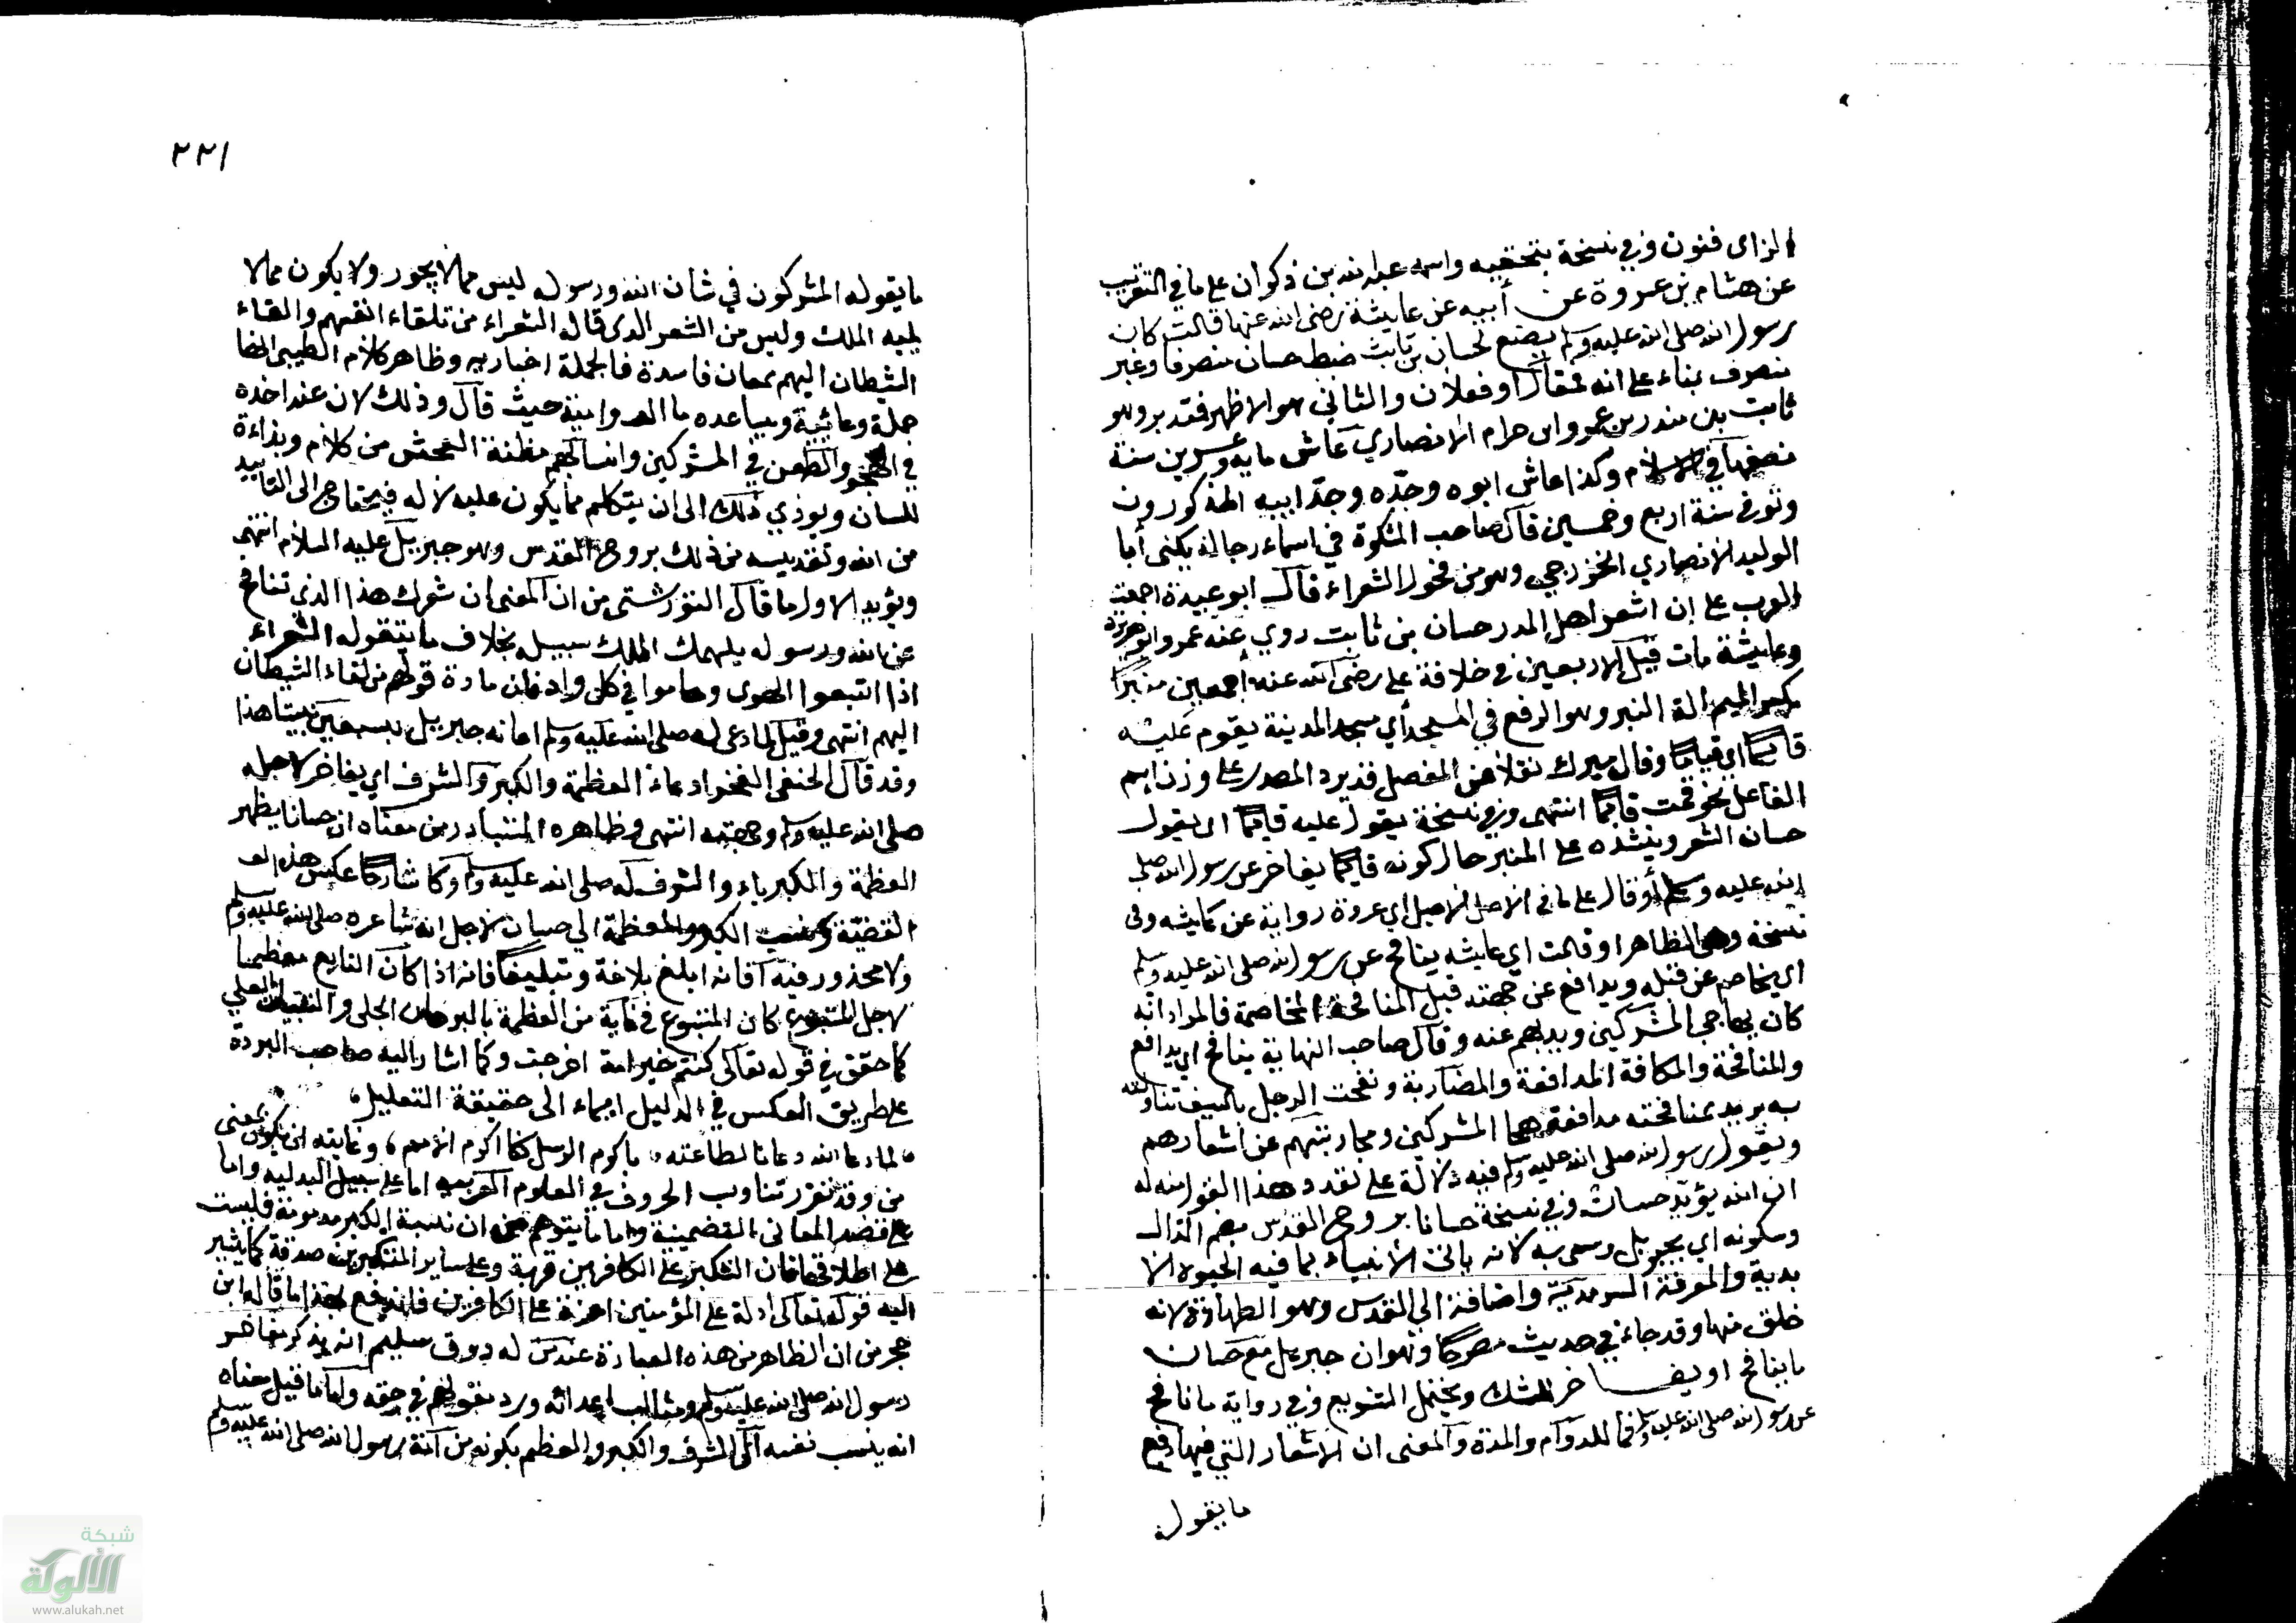 الزاى فنون وفي نسخة بتحقيه واسمه عبد الله بن ذكوان على ما في التقريب
عن هشام بن عروة عن أبيه عن عايشة رضى الله عنها قالت كان
رسول الله صلى الله عليه وسلم يضع لحسان بن ثابت ضبط حسان منصرفا وغير
منصرف بناء على انه فعال او فعلان والثاني هو الاظهر فتدبر وهو
ثابت بن منذر بن عمرو ابن حرام الانصاري عاش ماية وعشرين سنة
نصفها في الاسلام وكذا عاش ابوه وجده وجد ابيه المذكورون
وتوفي سنة اربع وخمسين قال صاحب المشكوة في اسماء رجاله يكنى أبا
الوليد الانصاري الخزرجي وهو من فحول الشعراء قال ابو عبيدة اجمعت
العرب على ان اشعر اهل المدر حسان بن ثابت روي عنه عمر وابو هريرة
وعايشة مات قبل الاربعين في خلافة على رضى الله عنه اجمعين منبرًا
بكسر الميم الة النبر وهو الرفع في المسجد أي مسجد المدينة يقوم عليه
قايمًا اي قيامًا وقال ميرك نقلا عن المفصل قد يرد المصدر على وزن اسم
الفاعل نحو قمت قايمًا انتهى وفي نسخة يقول عليه قايمًا اى يقول
حسان الشعر وينشده على المنبر حال كونه قايمًا يفاخر عن رسول الله صلى
الله عليه وسلم أو قال على ما في الاصل الاصيل اي عروة رواية عن عايشه وفى
نسخة وهي الظاهر او قالت اي عايشه ينافح عن رسول الله صلى الله عليه وسلم
اي يخاصم عن قتله ويدافع عن جهته قيل المنافحة المخاصمة فالمراد انه
كان يهاجي المشركين ويذبهم عنه وقال صاحب النهاية ينافح اي يدافع
والمنافحة والمكافة المدافعة والمضاربة ونفحت الرجل بالسيف تناولته
به يريد بمنافحته مدافعة هجا المشركين ومجاربتهم عن اشعارهم
ويقول رسول الله صلى الله عليه وسلم فيه دلالة على تعدد هذا القول منه له
ان الله يؤيد حسان وفي نسخة حسانا بروح القدس بضم الدال
وسكونه اي بجبريل وسمى به لانه ياتى الأنبياء بما فيه الحيوة الا
بدية والمعرفة السرمدية واضافته الى القدس وهو الطهارة لانه
خلق منها وقد جاء في حديث مصرحًا وهو ان جبريل مع حسان
ما ينافح او يفاخر للشك ويحتمل التنويع وفي رواية ما نافح
عن رسول الله صلى الله عليه وسلم فما للدوام والمدة والمعنى ان الاشعار التي فيها دفع
ما يقوله
٢٢١
ما يقوله المشركون في شان الله ورسوله ليس مما لا يجوز ولا يكون مما لا
يلهمه الملك وليس من الشعر الذى قاله الشعراء من تلقاء انفسهم والقاء
الشيطان اليهم بمعان فاسدة فالجملة اخبارية وظاهر كلام الطيبي انها
جملة دعائية ويساعده ما حيث قال وذلك لان عند اخذه
في الهجو والطعن في المشركين وانسابهم مظنة الفحش من كلام وبذاءة
اللسان ويوذي ذلك الى ان يتكلم بما يكون عليه لا له فيحتاج الى التاييد
من الله وتقديسه من ذلك بروح القدس وهو جبريل عليه السلام انتهى
ويؤيد الاول ما قال التورپشتى من ان المعنى ان شعرك هذا الذي تنافح
عن الله ورسوله يلهمك الملك سبيله بخلاف ما يتقوله الشعراء
اذا اتبعوا الهوى وهاموا في كل واد فان مادة قولهم من لقاء الشيطان
اليهم انتهى وقيل لما دعى له صلى الله عليه وسلم اعانه جبريل بسبعين بيتا هذا
وقد قال الحنفي الفخر ادعاء العظمة والكبر والشرف اي يفاخر لاجله
صلى الله عليه وسلم وجهته انتهى وظاهره المتبادر من معناه ان حسانا يظهر
العظمة والكبرياء والشرف له صلى الله عليه وسلم وكا شارحًا عكس هذه
القضية ونسب الكبر والعظمة الى حسان لاجل انه شاعره صلى الله عليه وسلم
ولا محذور فيه فانه ابلغ بلاغة وتبليغًا فانه اذا كان التابع معظما
لاجل المتبوع كان المتبوع في غاية من العظمة بالبرهان الجلى
كما حقق في قوله تعالى كنتم خير امة اخرجت وكما اشار اليه صاحب البردة
على طريق العكس في الدليل ايماء الى حقيقة التعليل
لما دعا الله دعانا لطاعته باكرم الرسل كنا اكرم الامم وغايته ان يكون عن بمعنى
من وقد تقرر تناوب الحروف في العلوم العربيه اما على سبيل البدليه واما
على قصد المعانى التضمينية واما ما يتوهم من ان نسبة الكبر مذمومة فليست
على اطلاقها فان التكبر على الكافرين قربة وعلى ساير المتكبرين صدقة كما يشير
اليه قوله تعالى اذلة على المؤمنين اعزة على الكافرين فاندفع بهذا ما قاله ابن
حجر من ان الظاهر من هذه العبارة عند من له ذوق سليم انه يذكر مفاخر
رسول الله صلى الله عليه وسلم ومثالب اعدائه ورد تقولهم في حقه واما ما قيل معناه
انه ينسب نفسه الى الشرف والكبر والعظم بكونه من امة رسول الله صلى الله عليه وسلم
شبكة
الألوكة
www.alukah.net